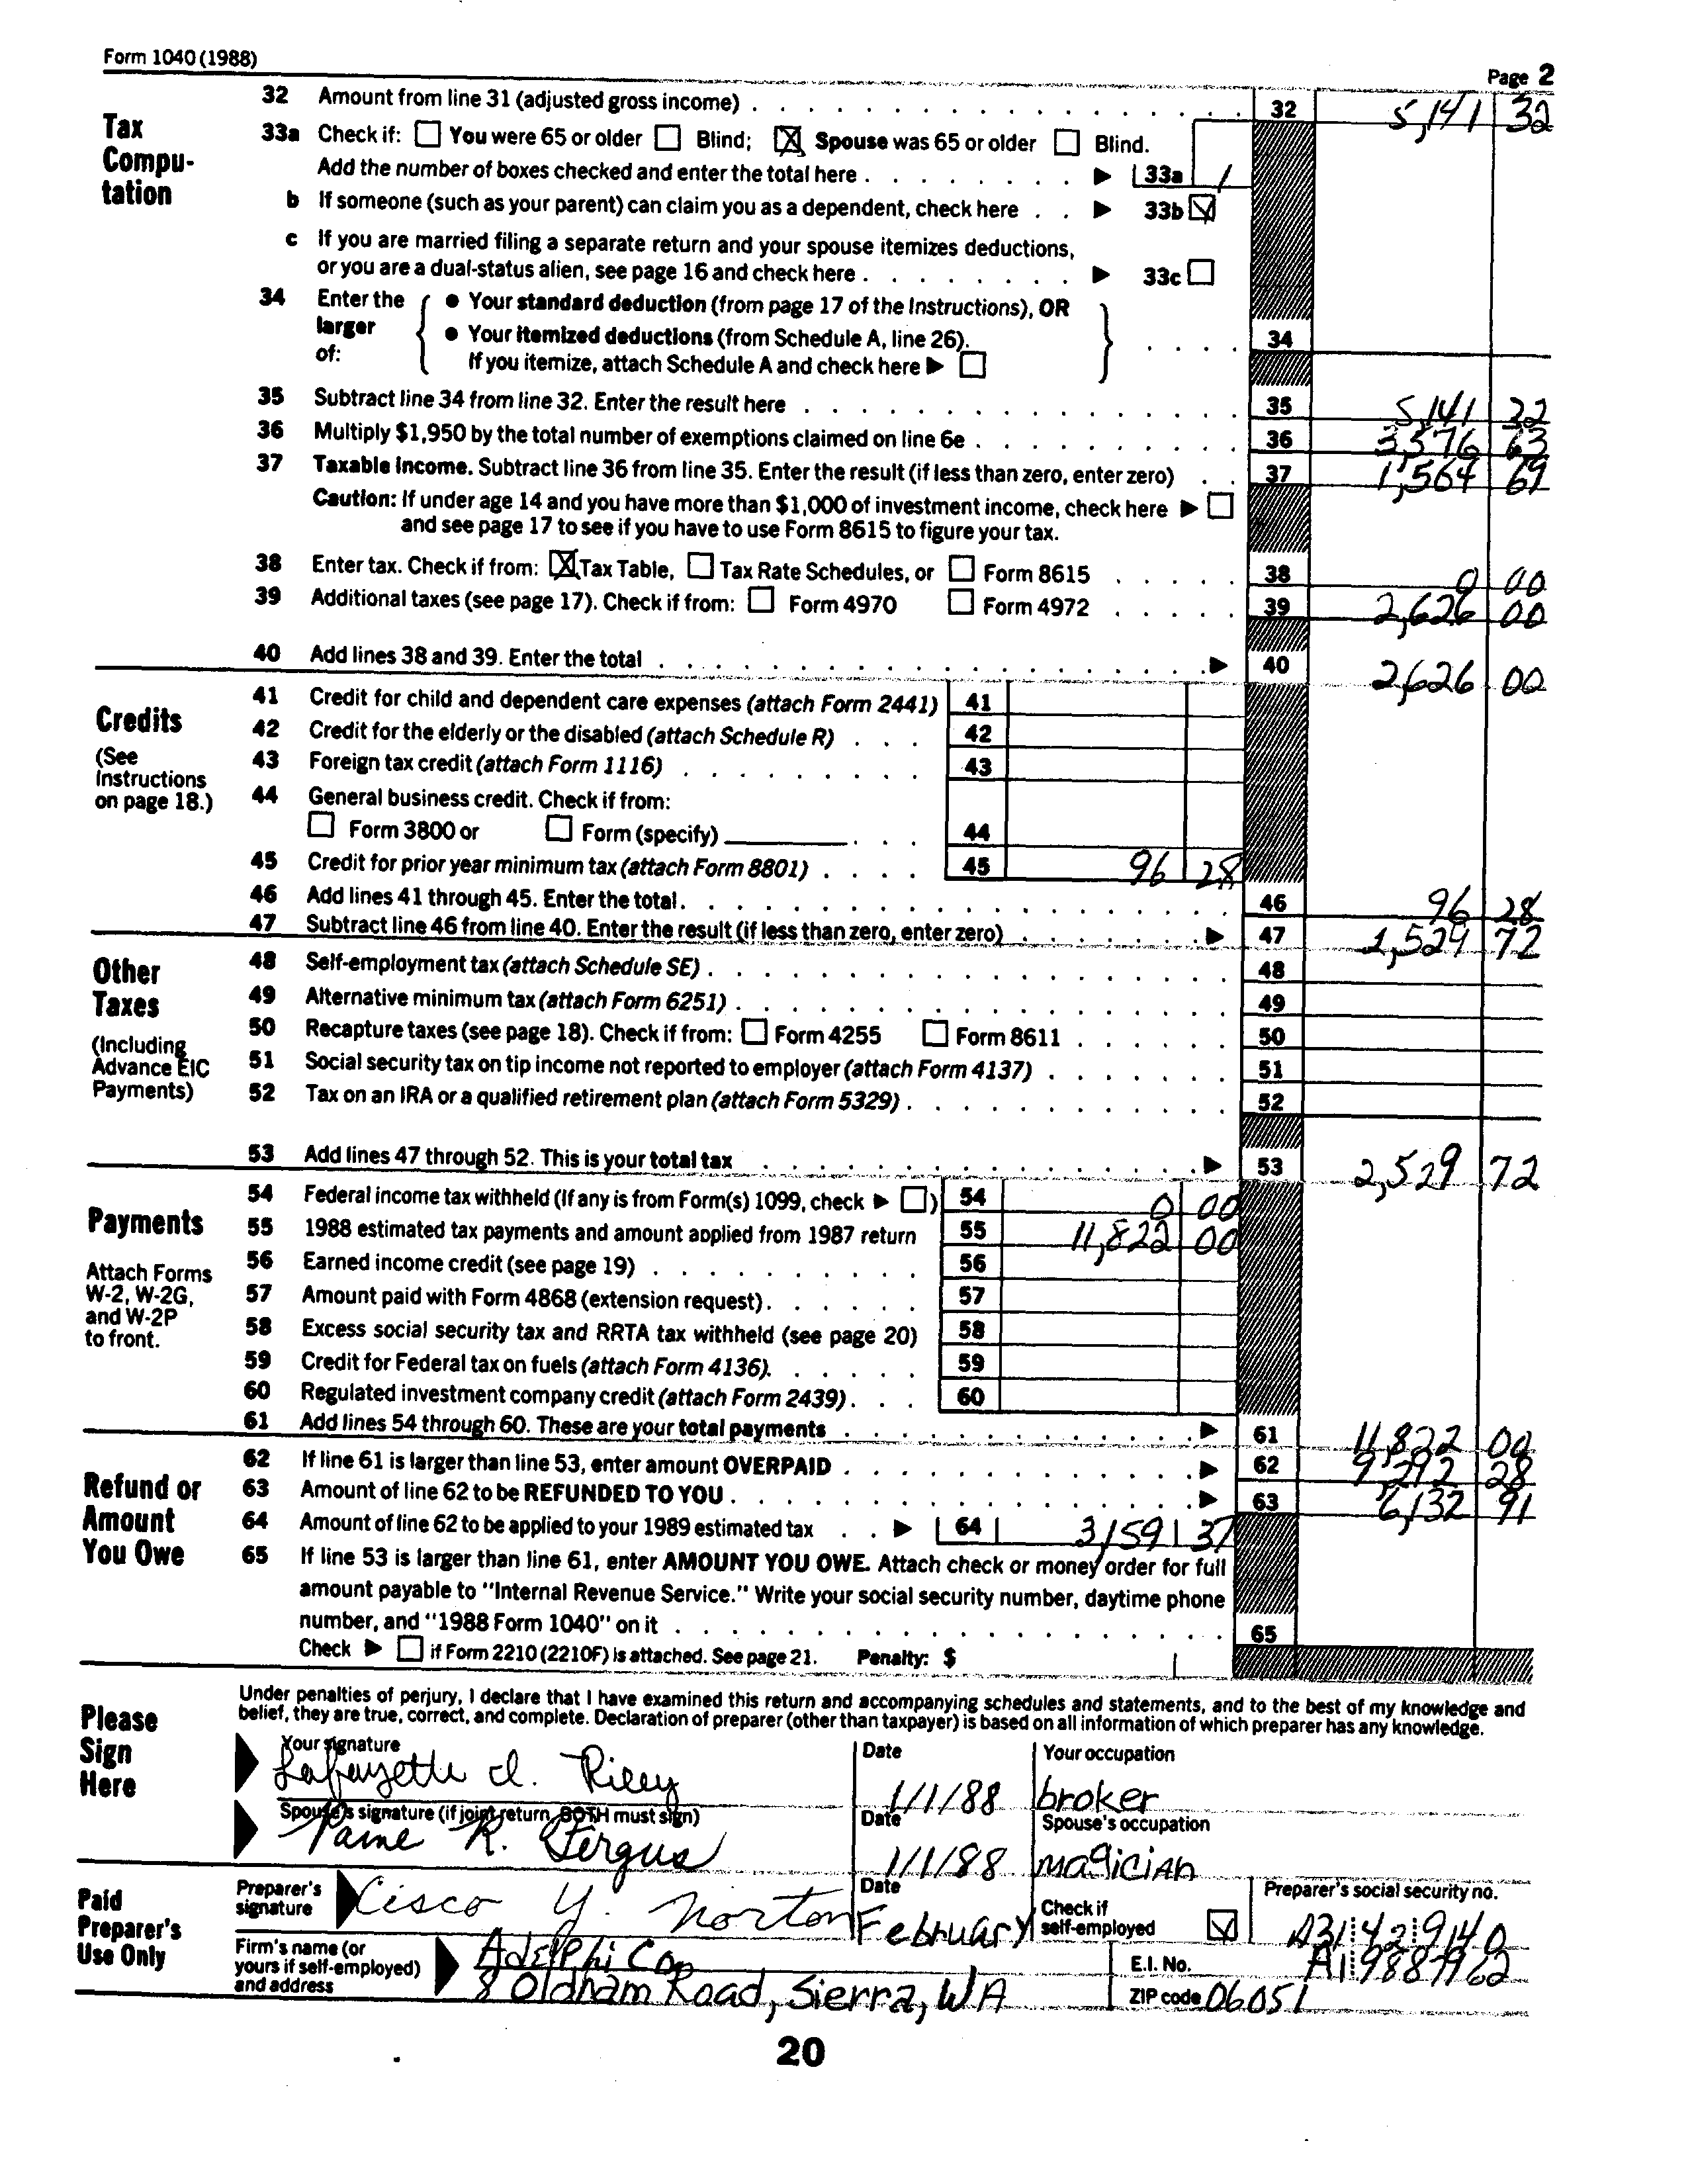 Form 1040 (1988)
Page 2
Tax Compu-tation
32 Amount from line 31 (adjusted gross income) 32 5,141 32
33a Check if: You were 65 or older Blind; X Spouse was 65 or older Blind.
Add the number of boxes checked and enter the total here 33a 1
b If someone (such as your parent) can claim you as a dependent, check here 33b
c If you are married filing a separate return and your spouse itemizes deductions,
or you are a dual-status alien, see page 16 and check here 33c
34 Enter the larger of:
• Your standard deduction (from page 17 of the Instructions), OR
• Your itemized deductions (from Schedule A, line 26). 34
If you itemize, attach Schedule A and check here
35 Subtract line 34 from line 32. Enter the result here 35 5,141 32
36 Multiply $1,950 by the total number of exemptions claimed on line 6e 36 3,576 63
37 Taxable income. Subtract line 36 from line 35. Enter the result (if less than zero, enter zero) 37 1,564 69
Caution: If under age 14 and you have more than $1,000 of investment income, check here
and see page 17 to see if you have to use Form 8615 to figure your tax.
38 Enter tax. Check if from: X Tax Table, Tax Rate Schedules, or Form 8615 38 0 00
39 Additional taxes (see page 17). Check if from: Form 4970 Form 4972 39 2,626 00
40 Add lines 38 and 39. Enter the total 40 2,626 00
Credits
(See Instructions on page 18.)
41 Credit for child and dependent care expenses (attach Form 2441) 41
42 Credit for the elderly or the disabled (attach Schedule R) 42
43 Foreign tax credit (attach Form 1116) 43
44 General business credit. Check if from:
Form 3800 or Form (specify) 44
45 Credit for prior year minimum tax (attach Form 8801) 45 96 28
46 Add lines 41 through 45. Enter the total. 46 96 28
47 Subtract line 46 from line 40. Enter the result (if less than zero, enter zero) 47 2,529 72
Other Taxes
(Including Advance EIC Payments)
48 Self-employment tax (attach Schedule SE) 48
49 Alternative minimum tax (attach Form 6251) 49
50 Recapture taxes (see page 18). Check if from: Form 4255 Form 8611 50
51 Social security tax on tip income not reported to employer (attach Form 4137) 51
52 Tax on an IRA or a qualified retirement plan (attach Form 5329) 52
53 Add lines 47 through 52. This is your total tax 53 2,529 72
Payments
Attach Forms W-2, W-2G, and W-2P to front.
54 Federal income tax withheld (If any is from Form(s) 1099, check ) 54 0 00
55 1988 estimated tax payments and amount applied from 1987 return 55 11,822 00
56 Earned income credit (see page 19) 56
57 Amount paid with Form 4868 (extension request) 57
58 Excess social security tax and RRTA tax withheld (see page 20) 58
59 Credit for Federal tax on fuels (attach Form 4136) 59
60 Regulated investment company credit (attach Form 2439) 60
61 Add lines 54 through 60. These are your total payments 61 11,822 00
Refund or Amount You Owe
62 If line 61 is larger than line 53, enter amount OVERPAID 62 9,292 28
63 Amount of line 62 to be REFUNDED TO YOU 63 6,132 91
64 Amount of line 62 to be applied to your 1989 estimated tax 64 3,159 37
65 If line 53 is larger than line 61, enter AMOUNT YOU OWE. Attach check or money order for full
amount payable to "Internal Revenue Service." Write your social security number, daytime phone
number, and "1988 Form 1040" on it 65
Check if Form 2210 (2210F) is attached. See page 21. Penalty: $
Please Sign Here
Under penalties of perjury, I declare that I have examined this return and accompanying schedules and statements, and to the best of my knowledge and
belief, they are true, correct, and complete. Declaration of preparer (other than taxpayer) is based on all information of which preparer has any knowledge.
Your signature Date Your occupation
Lafayette d. Riley 1/1/88 broker
Spouse's signature (if joint return, BOTH must sign) Date Spouse's occupation
Paine R. Fergus 1/1/88 magician
Paid Preparer's Use Only
Preparer's signature Cisco Y. Norton Date February Check if self-employed Preparer's social security no.
A31 42 9140
Firm's name (or yours if self-employed) and address Adelphi Cop E.I. No. A1 9887962
8 Oldham Road, Sierra, WA ZIP code 06051
20